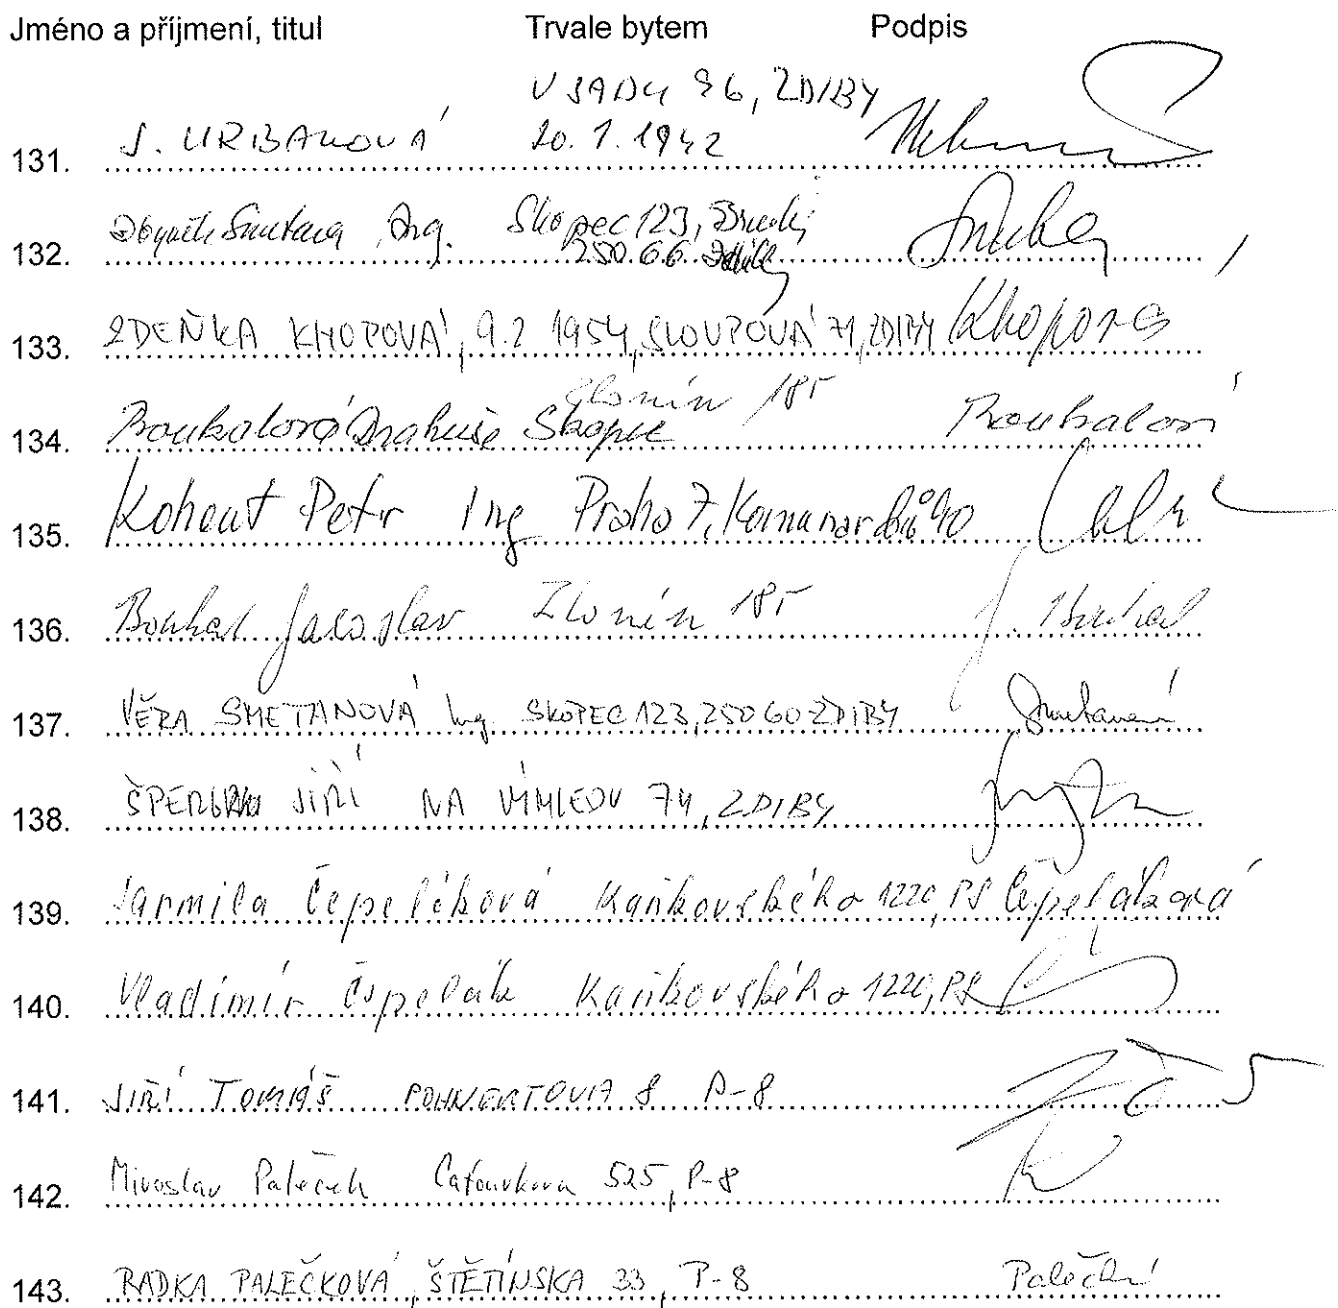 Jméno a příjmení, titul Trvale bytem Podpis
V SADU 96, ZDIBY
131. J. URBANOVÁ 20. 1. 1942
132. Zbyněk Smetana Ing. Skopec 123, Brnky
250 66 Zdiby
133. ZDEŇKA KHOPOVÁ, 9.2 1954, SLOUPOVÁ 71, ZDIBY Khopová
Zlonín 185
134. Boukalová Drahuše Skopec Boukalová
135. Kohout Petr Ing Praha 7, Komunardů 40
136. Boukal Jaroslav Zlonín 185 J. Boukal
137. VĚRA SMETANOVÁ Ing. SKOPEC 123, 250 60 ZDIBY Smetanová
138. JIŘÍ NA VÝHLEDU 74, ZDIBY
139. Jarmila Čepeláková Kaňkovského 1220, P8 Čepeláková
140. Vladimír Čepelák Kaňkovského 1220, P8
141. JIŘÍ TOMÁŠ POHNERTOVA 8 P-8
142. Miroslav Paleček 525, P-8
143. RADKA PALEČKOVÁ, ŠTĚTÍNSKÁ 33, P-8